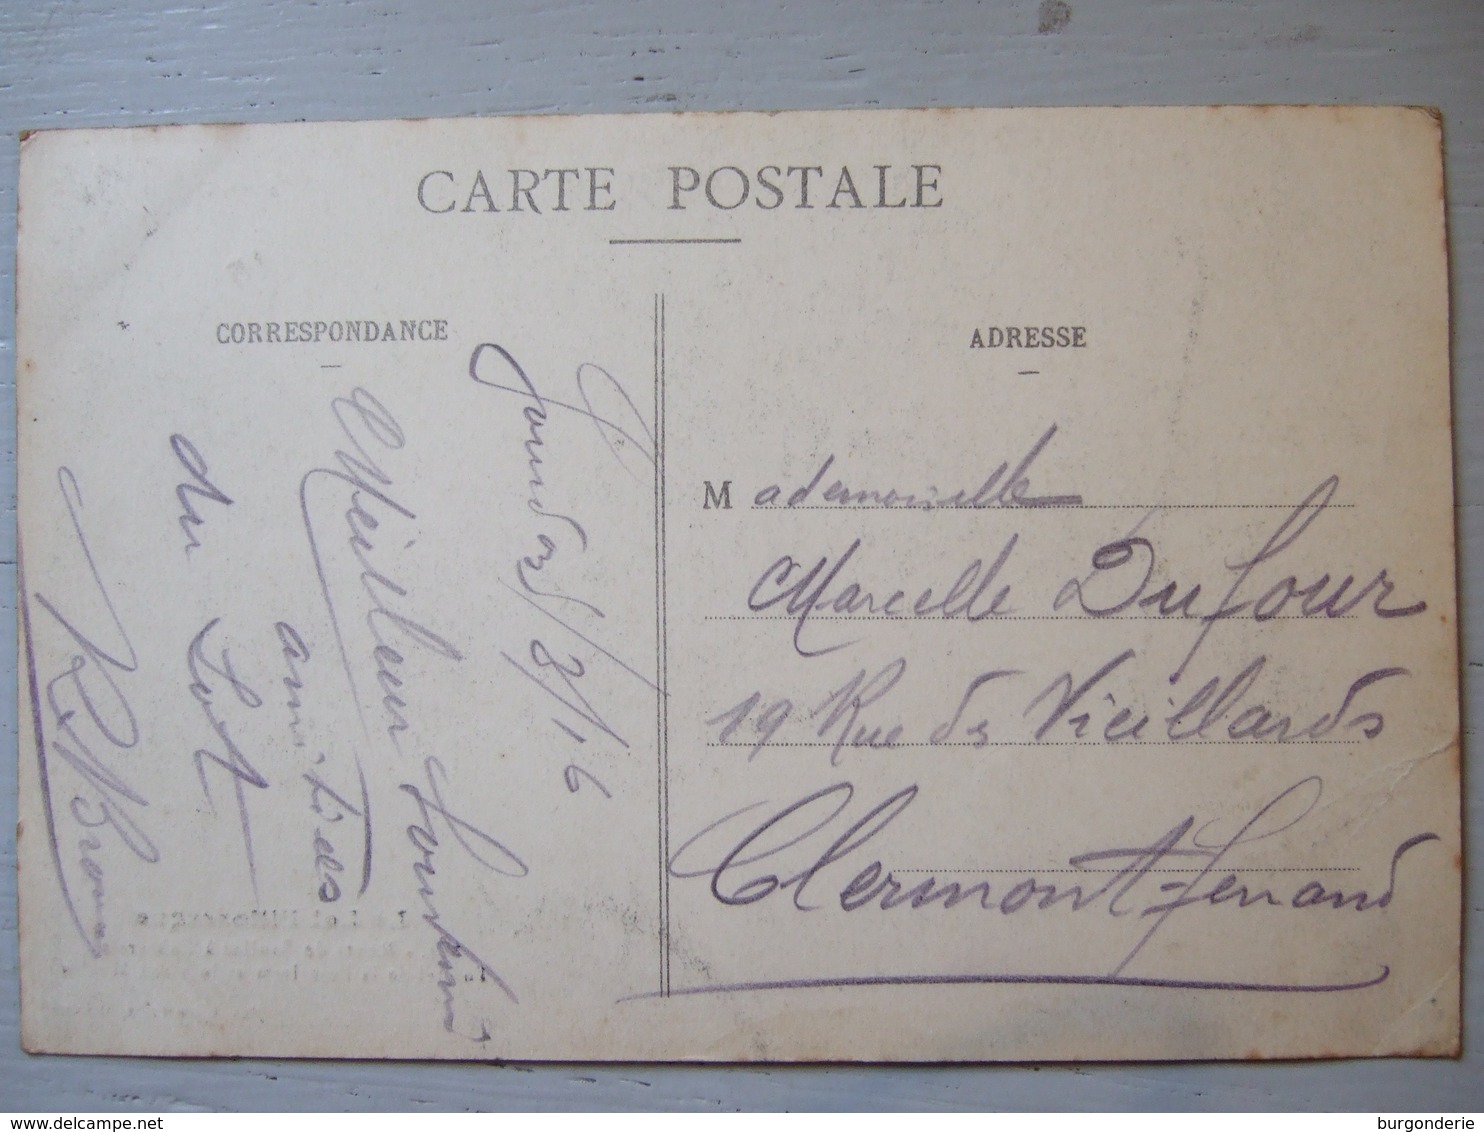 CARTE POSTALE
CORRESPONDANCE
ADRESSE
Gourdon 3/8/16
Meilleur Souvenir
amitiés
du Lot
Mademoiselle
Marcelle Dufour
19 Rue des Vieillards
Clermont-Ferrand
www.delcampe.net
burgonderie